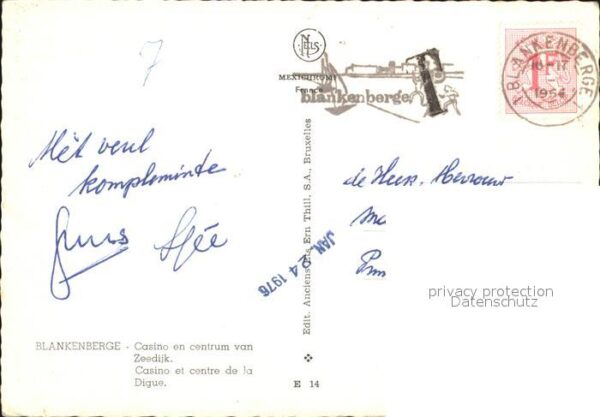 7
NELS
MEXICHROME
France
blankenberge.
T
BLANKENBERGE
16-17
1954
1F
Mèt veul
kompleminte
de Heer. Mevrouw
JAN. 24 1976
privacy protection
Datenschutz
Edit. Anciens Ets. Ern Thill, S.A., Bruxelles
BLANKENBERGE - Casino en centrum van
Zeedijk.
Casino et centre de la
Digue.
E 14